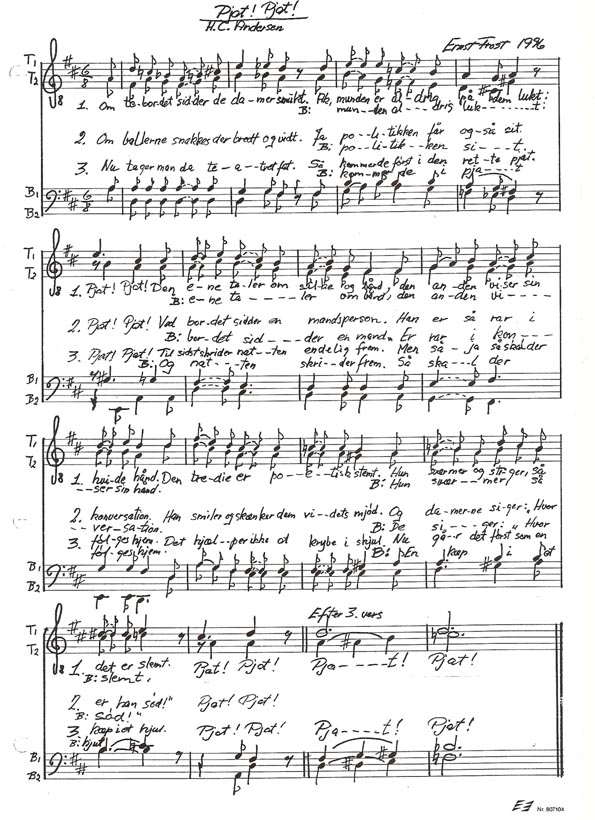 Pjat! Pjat!
H.C. Andersen
Ernst Frost 1996
T1
T2
8
1. Om te-bordet sidder de da-mer smukt. Ak, munden er al-drig på dem lukt:
B: mun--den al--drig luk----t:
2. Om ballerne snakkes der bredt og vidt. Ja po-li-tikken får og-så sit.
B: po-li-tik--ken si---t.
3. Nu tager man da te-a-tret fat. Så kommer de först i den ret-te pjat.
B: kom-mer de i pja----t
B1
B2
T1
T2
8
1. Pjat! Pjat! Den e-ne ta-ler om sil-ke og bånd, den an-den vi-ser sin
B: e-ne ta----ler om bånd, den an-den vi---
2. Pjat! Pjat! Ved bor-det sidder en mandsperson. Han er så rar i
B: bor-det sid----der en mand. Er rar i kon---
3. Pjat! Pjat! Til sidst skrider nat--ten endelig frem. Men så-ja så skal der
B: Og nat---ten skri--der frem. Så ska--l der
B1
B2
T1
T2
8
1. hvi-de hånd. Den tre-die er po---e-tisk stemt. Hun sværmer og sti-ger, Så
---ser sin hånd. B: Hun svær---mer så
2. konversation. Han smiler og skænker dem vi--dets mjöd. Og da-mer-ne si-ger: "Hvor
ver-sa-tion. B: De si----ger: "Hvor
3. föl-ges hjem. Det hjæl--per ikke at krybe i skjul. Nu gå-r det först som en
föl-ges hjem. B: En kap i at
B1
B2
Efter 3. vers
T1
T2
8
1. det er slemt. Pjat! Pjat! Pja----t! Pjat!
B: slemt,
2. er han söd!" Pjat! Pjat!
B: Söd!"
3. kap i et hjul. Pjat! Pjat! Pja----t! Pjat!
B: hjul
B1
B2
Nr. 807104